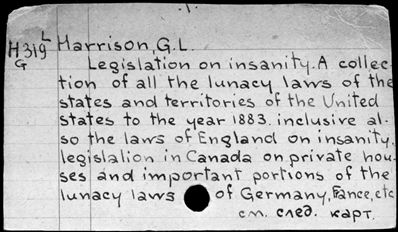 L Harrison, G. L.
H319
G Legislation on insanity. A collec-
tion of all the lunacy laws of the
states and territories of the United
states to the year 1883. inclusive al-
so the laws of England on insanity,
legislation in Canada on private hou-
ses and important portions of the
lunacy laws of Germany, France, etc
см. след. карт.